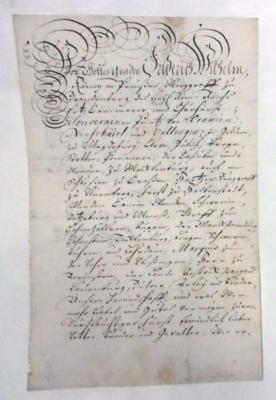 Von Gottes Gnaden Friderich Wilhelm,
König in Preußen, Marggraff zu
Brandenburg, des Heil. Röm. Reichs
Ertz Cämmerer und Churfürst,
Souverainer Printz von Oranien,
Neufchâtel und Vallengin, in Geldern,
zu Magdeburg, Cleve, Jülich, Berge,
Stettin, Pommern, der Caßuben und
Wenden, zu Mecklenburg, auch
Schlesien zu Crossen Hertzog, Burggraff
zu Nürnberg, Fürst zu Halberstadt,
Minden, Camin, Wenden, Schwerin,
Ratzeburg und Meurß, Graff zu
Hohenzollern, Ruppin, der Marck, Ravensberg
Hohnstein, Tecklenburg, Lingen, Schwerin,
Bühren und Lehrdam, Marquis zu
der Vehre und Vlißingen, Herr zu
Ravenstein, der Lande Rostock, Stargard
Lauenburg, Bütow, Arlay und Breda,
Unsere Freundschafft, und was Wir
mehr Liebes und Gutes vermögen, zuvor,
Fürst, freundlich lieber
Vetter, Bruder und Gevatter,